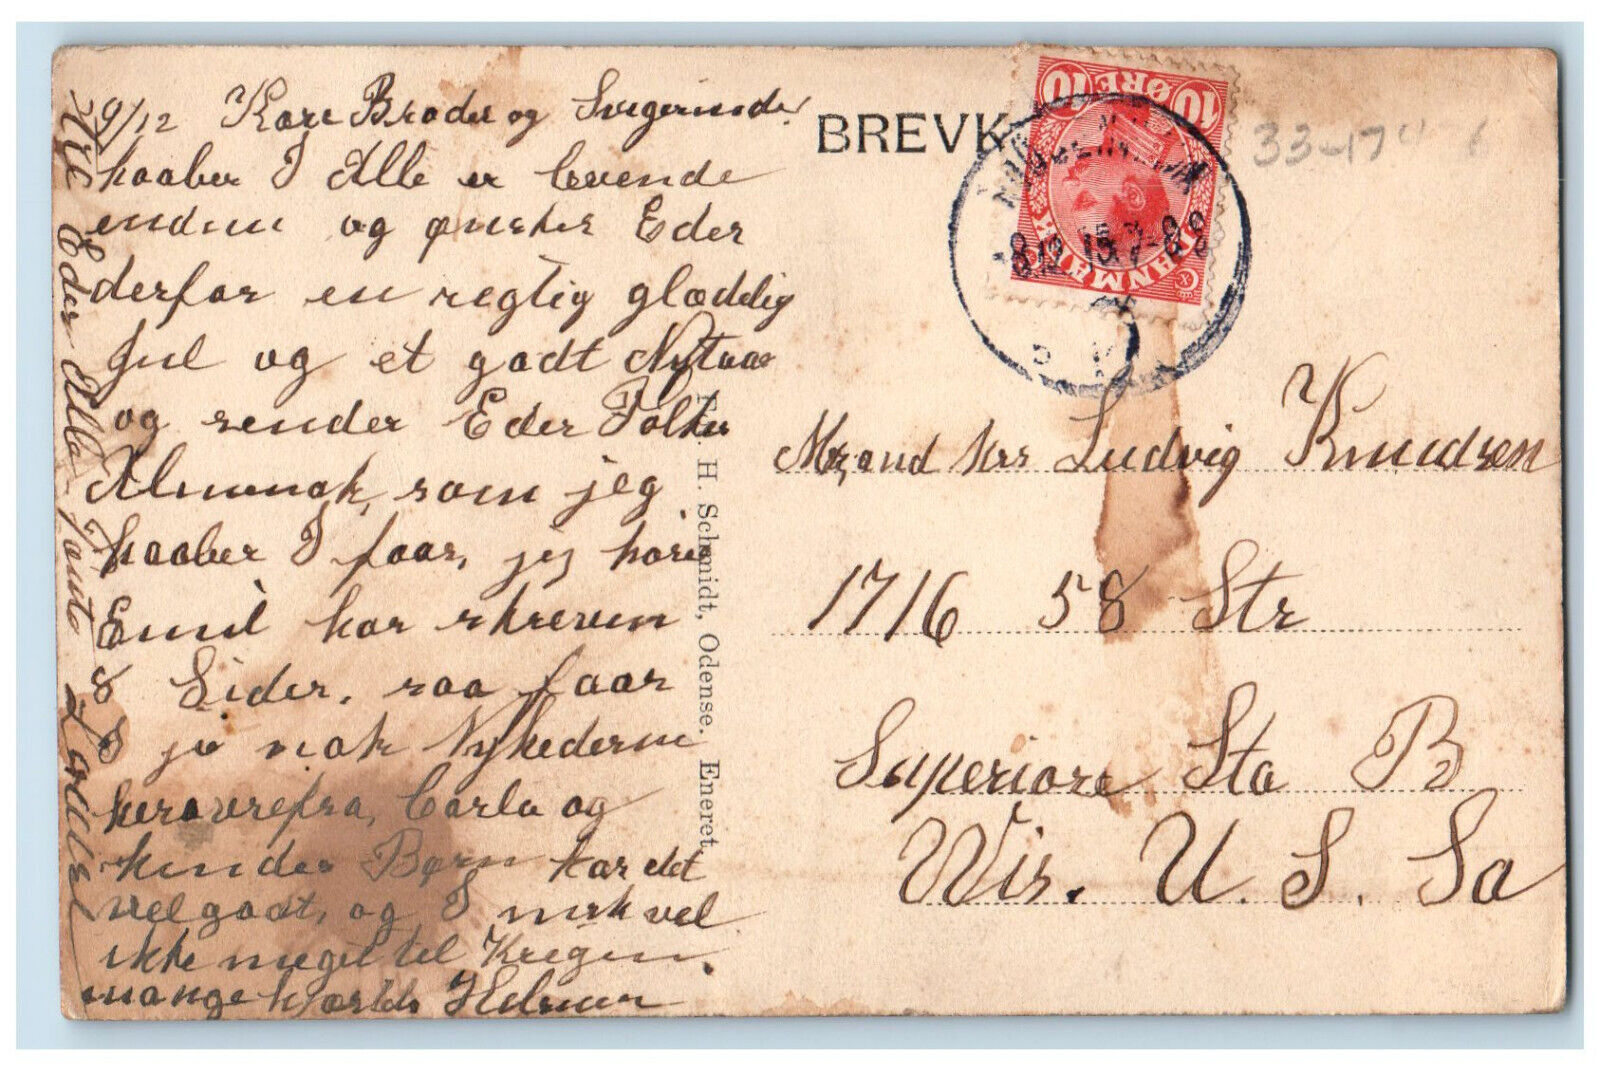 9/12 Kære Broder og Svigerinde
haaber I Alle er levende
endnu og ønsker Eder
derfor en regtig glæddig
Jul og et godt Nytaar
og sender Eder Folke
Almanak, som jeg
haaber I faar, jeg hører
Emil har skreven
8 Sider, saa faar
I jo nok Nyhederne
herovrefra, Carla og
hendes Børn har det
vel godt, og I mærk vel
ikke meget til Kregen.
mange
Eder Alle
BREVK
10 ØRE 10
DANMARK
8.12.15.7-8
33-174
Mr, and Mrs Ludvig Knudsen
1716 58 Str
Superiore Sta B
Wis. U. S. Sa
H. Schmidt, Odense. Eneret